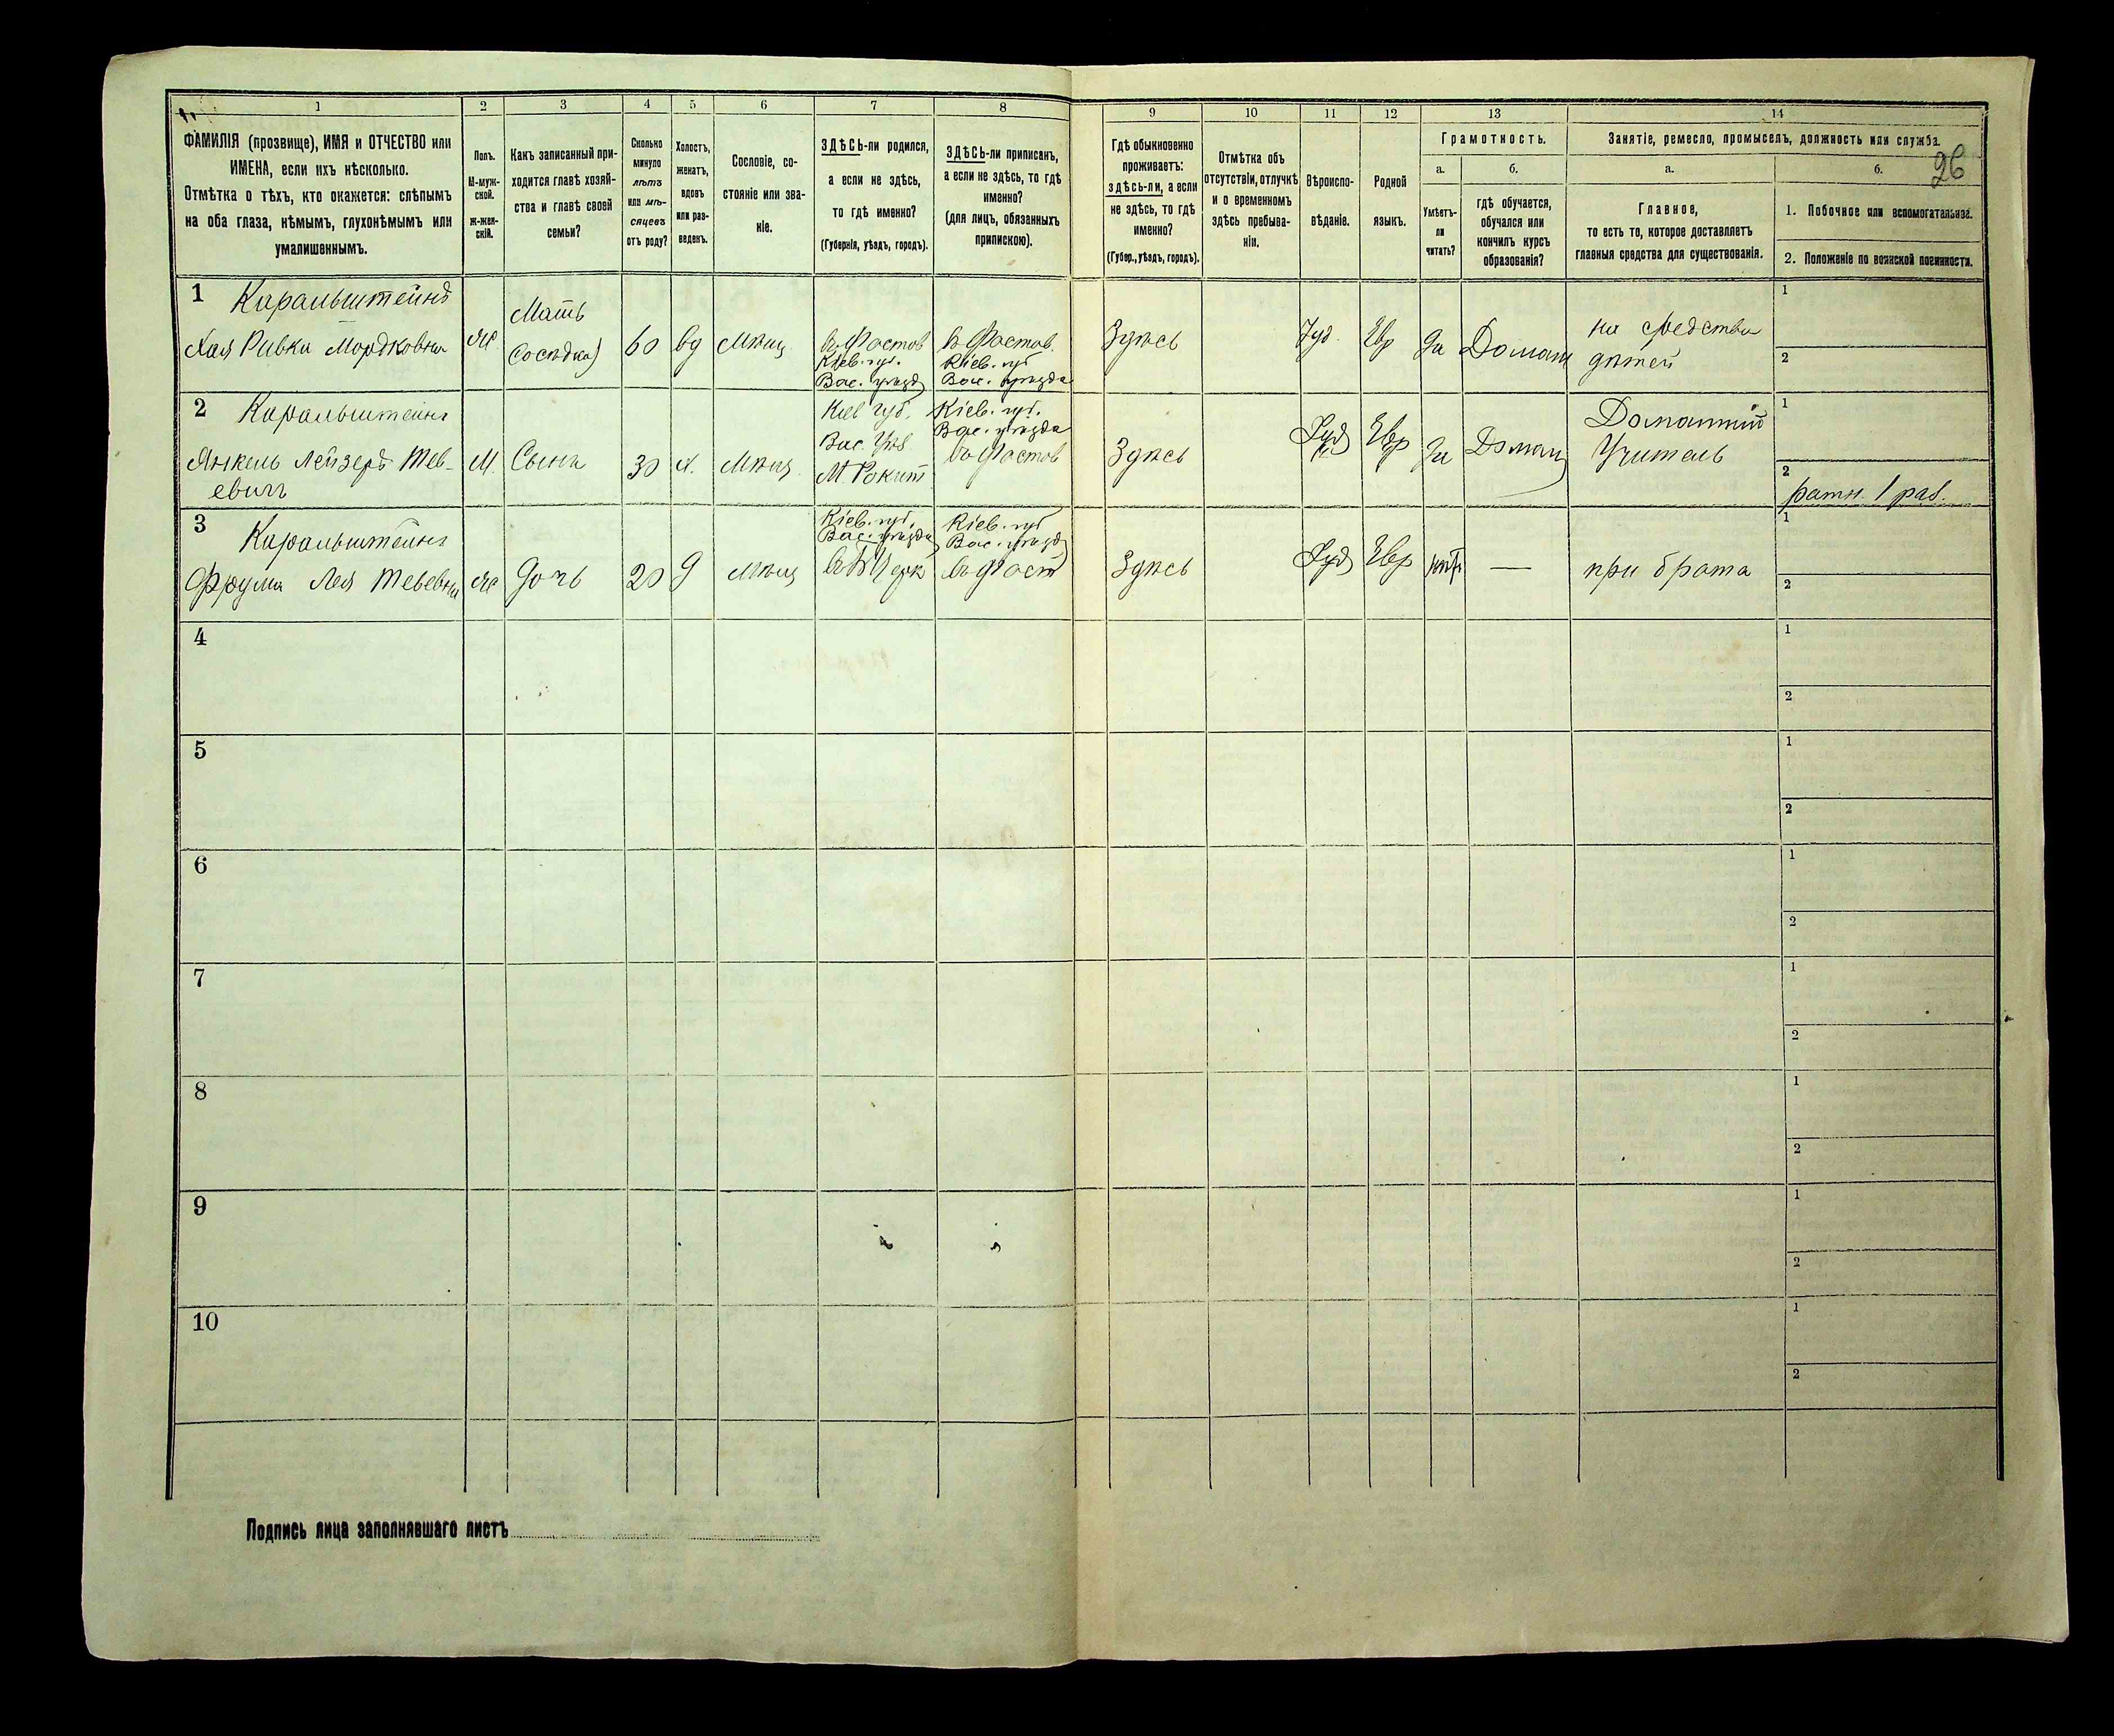 1 2 3 4 5 6 7 8 9 10 11 12 13 14
26
ФАМИЛІЯ (прозвище), ИМЯ и ОТЧЕСТВО или
ИМЕНА, если ихъ нѣсколько.
Отмѣтка о тѣхъ, кто окажется: слѣпымъ
на оба глаза, нѣмымъ, глухонѣмымъ или
умалишеннымъ.
Полъ.
М-муж-
ской.
Ж-жен-
скій.
Какъ записанный при-
ходится главѣ хозяй-
ства и главѣ своей
семьи?
Сколько
минуло
лѣтъ
или мѣ-
сяцевъ
отъ роду?
Холостъ,
женатъ,
вдовъ
или раз-
веденъ.
Сословіе, со-
стояніе или зва-
ніе.
ЗДѢСЬ-ли родился,
а если не здѣсь,
то гдѣ именно?
(Губернія, уѣздъ, городъ).
ЗДѢСЬ-ли приписанъ,
а если не здѣсь, то гдѣ
именно?
(для лицъ, обязанныхъ
припискою).
Гдѣ обыкновенно
проживаетъ:
здѣсь-ли, а если
не здѣсь, то гдѣ
именно?
(Губер., уѣздъ, городъ).
Отмѣтка объ
отсутствіи, отлучкѣ
и о временномъ
здѣсь пребыва-
ніи.
Вѣроиспо-
вѣданіе.
Родной
языкъ.
Грамотность.
а.
Умѣетъ-
ли
читать?
б.
гдѣ обучается,
обучался или
кончилъ курсъ
образованія?
Занятіе, ремесло, промыселъ, должность или служба.
а.
Главное,
то есть то, которое доставляетъ
главныя средства для существованія.
б.
1. Побочное или вспомогательное.
2. Положеніе по воинской повинности.
1 Каральштейнъ
Хая Ривка Мордковна
ж
Мать
Сосѣдка)
60
вд
Мѣщ.
въ Фастов
Кіев. губ.
Вас. уѣзда
въ Фастов.
Кіев. губ
Вас. уѣзда
Здѣсь
Іуд.
Евр
Да
Домаш
на средства
дѣтей
1
2
2 Каральштейнъ
Янкель Лейзеръ Тев-
евичъ
М.
Сынъ
30
х.
Мѣщ.
Кіев губ.
Вас. Уѣз.
М. Рокит
Кіев. губ.
Вас. уѣзда
въ Фастов
Здѣсь
Іуд
Евр
Да
Домаш
Домашній
Учитель
1
2
ратн. 1 раз.
3 Каральштейнъ
Фрума Лея Тевевна
ж
Дочь
20
д
Мѣщ
Кіев. губ.
Вас. уѣзда
въ Б Церк
Кіев. губ
Вас. уѣзд
въ Фаст
Здѣсь
Іуд
Евр
нѣт
—
при брата
1
2
4
1
2
5
1
2
6
1
2
7
1
2
8
1
2
9
1
2
10
1
2
Подпись лица заполнявшаго листъ